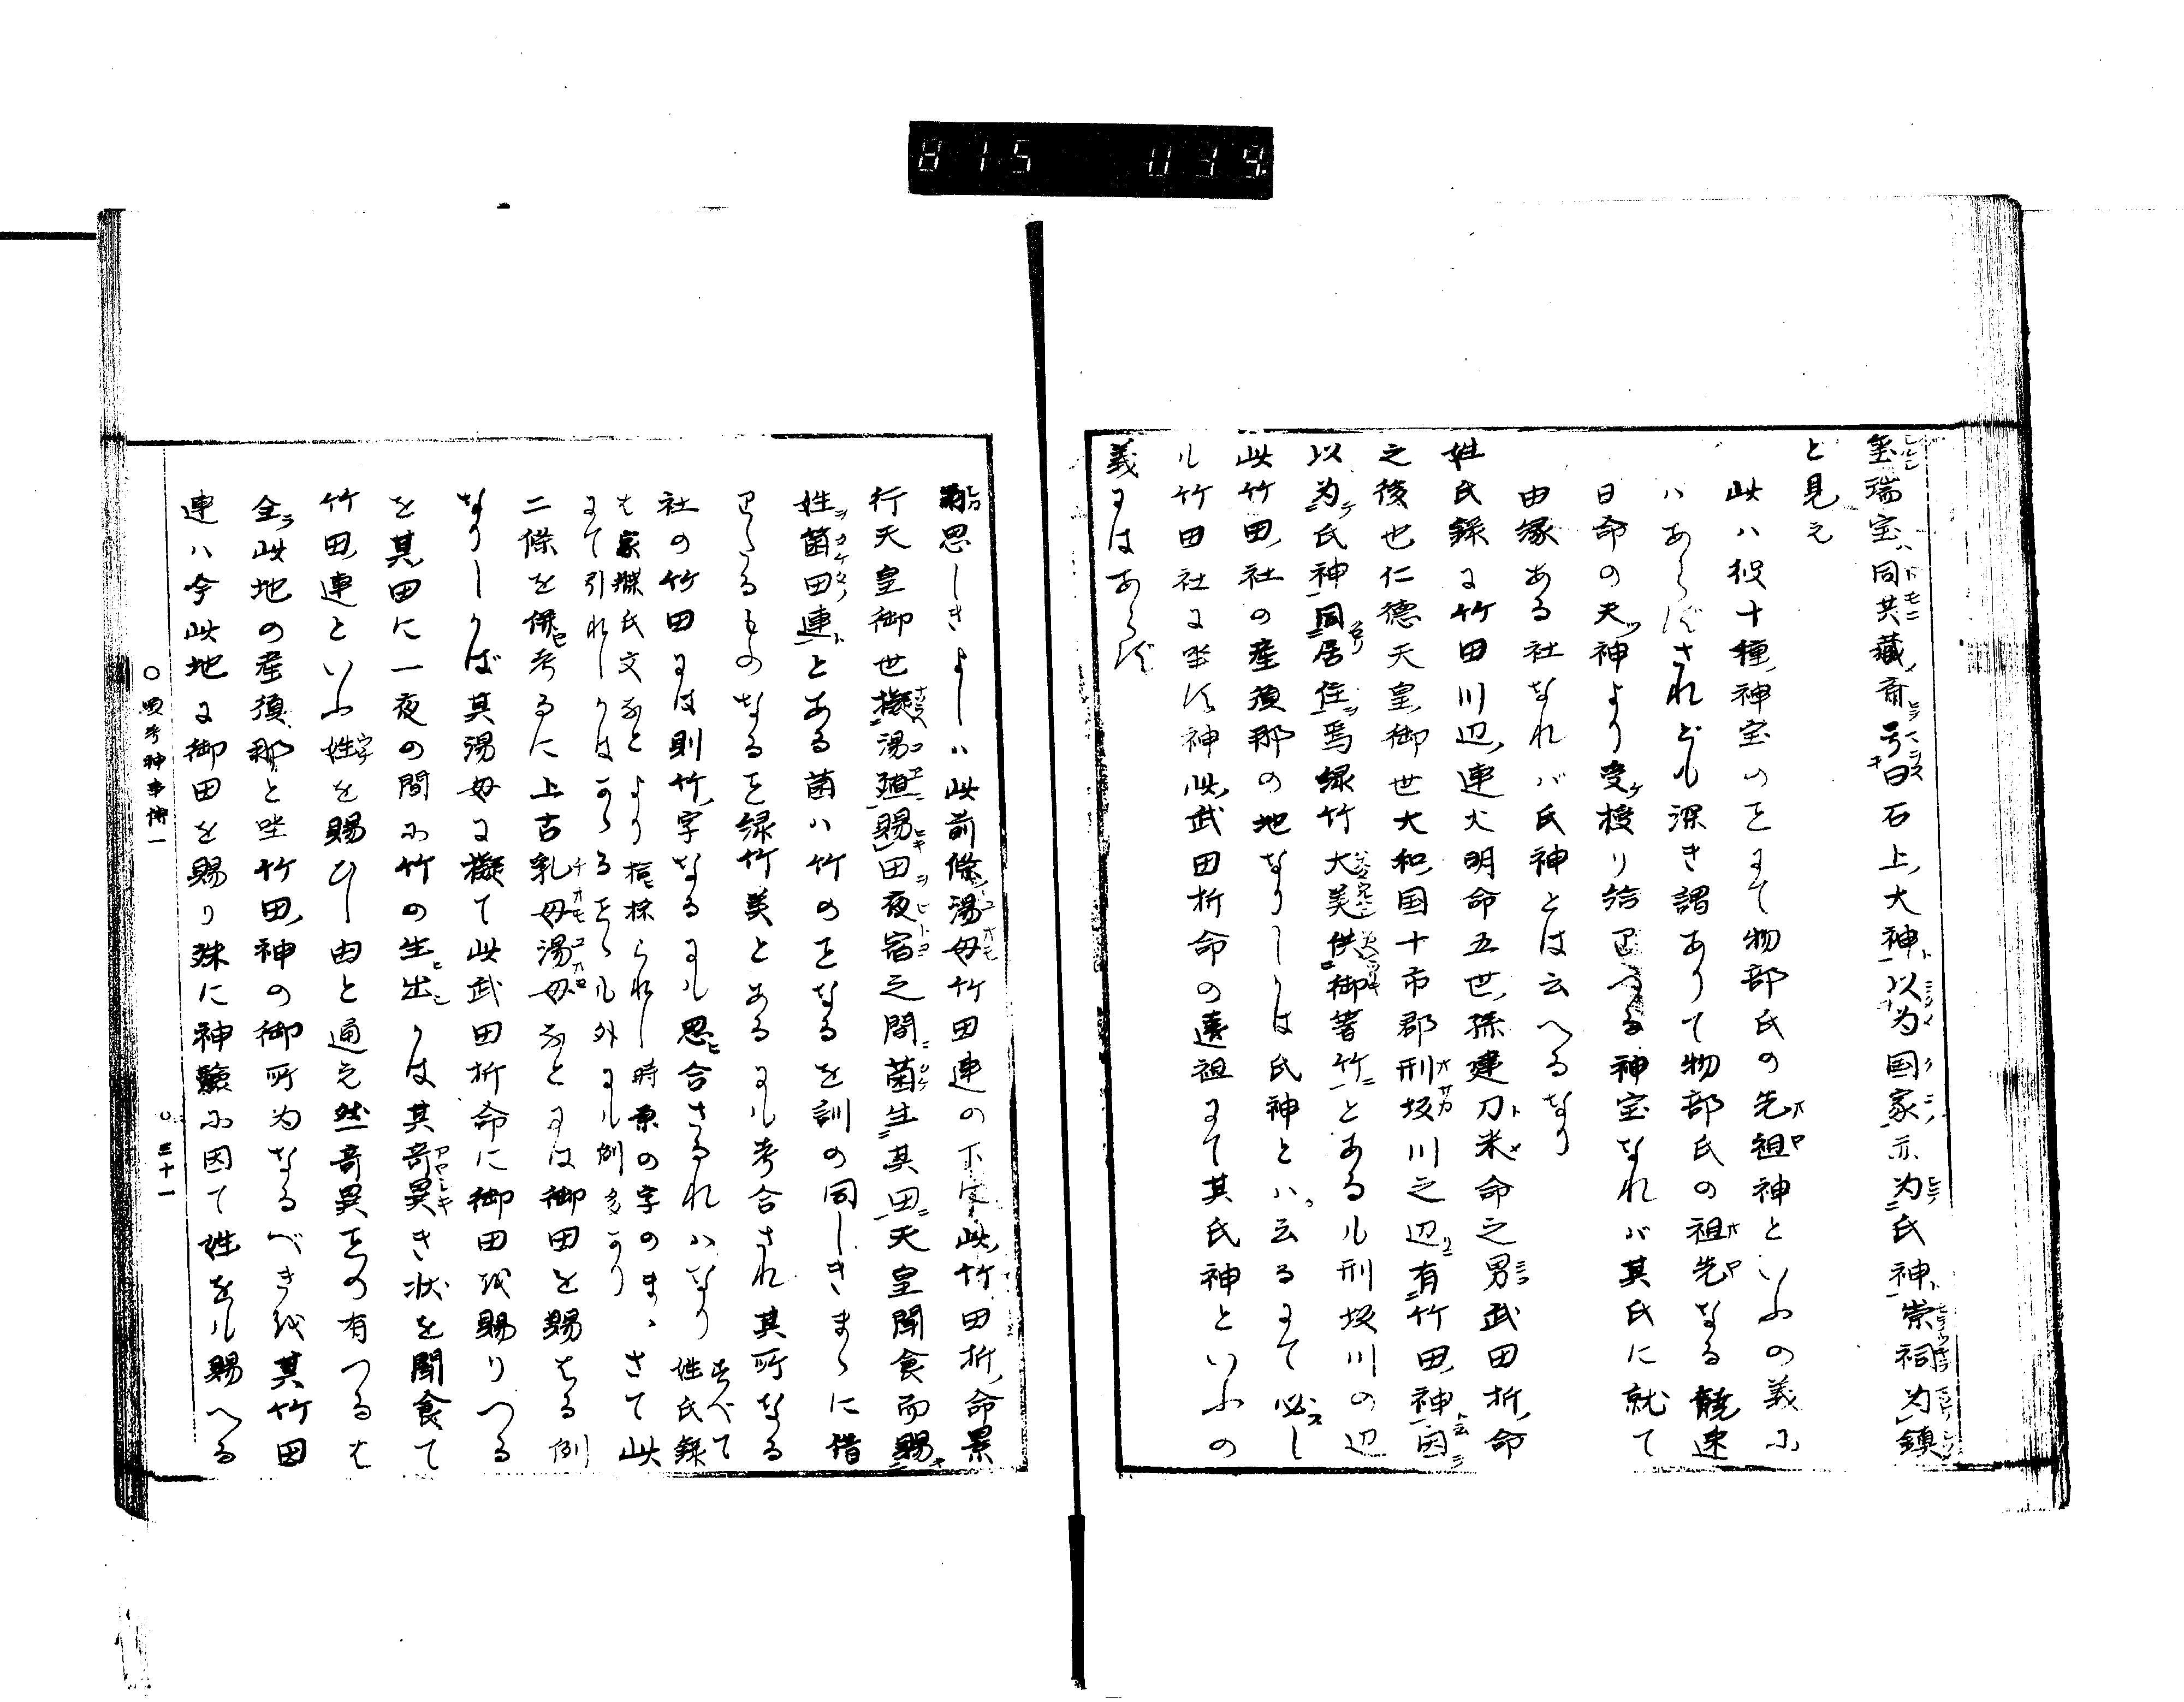 815 039
璽瑞宝同共蔵斎号曰石上大神以为国家亦为氏神崇祠为鎮
と見え
此ハ彼十種神宝のことにて物部氏の先祖神といふの義に
ハあらずされども深き謂ありて物部氏の祖先なる饒速
日命の天神より受授り給へる神宝なれバ其氏に就て
由縁ある社なれバ氏神とは云へるなり
姓氏録に竹田川辺連火明命五世孫建刀米命之男武田折命
之後也仁徳天皇御世大和国十市郡刑坂川之辺有竹田神因
以为氏神同居住焉緑竹大美供御箸竹とあるも刑坂川の辺
此竹田社の産須那の地なりしかは氏神とハ云るにて必し
も竹田社に坐す神此武田折命の遠祖にて其氏神といふの
義にはあらず
思しきよしハ此前條湯母竹田連の下に此竹田折命景
行天皇御世擬湯殖賜田夜宿之間菌生其田天皇聞食而賜
姓菌田連とある菌ハ竹のことなるを訓の同しきまゝに借
るものなるを緑竹美とあるにも考合され其所なる
社の竹田には則竹字なるにも思合さるれハなり すべて姓氏録
は家牒氏文などより採られし時原の字のまゝ
にて引れしかは外にも例多かり さて此
二條を併考るに上古乳母湯母などには御田を賜はる例
なりしかば其湯母に擬て此武田折命に御田を賜りつる
を其田に一夜の間に竹の生出しかは其奇異き状を聞食て
竹田連といふ姓字を賜ひし由と通え然奇異ことの有つるは
全此地の産須那と坐竹田神の御所为なるべきを其竹田
連ハ今此地に御田を賜り殊に神験に因て姓をも賜へる
○神事傳一 ○三十一